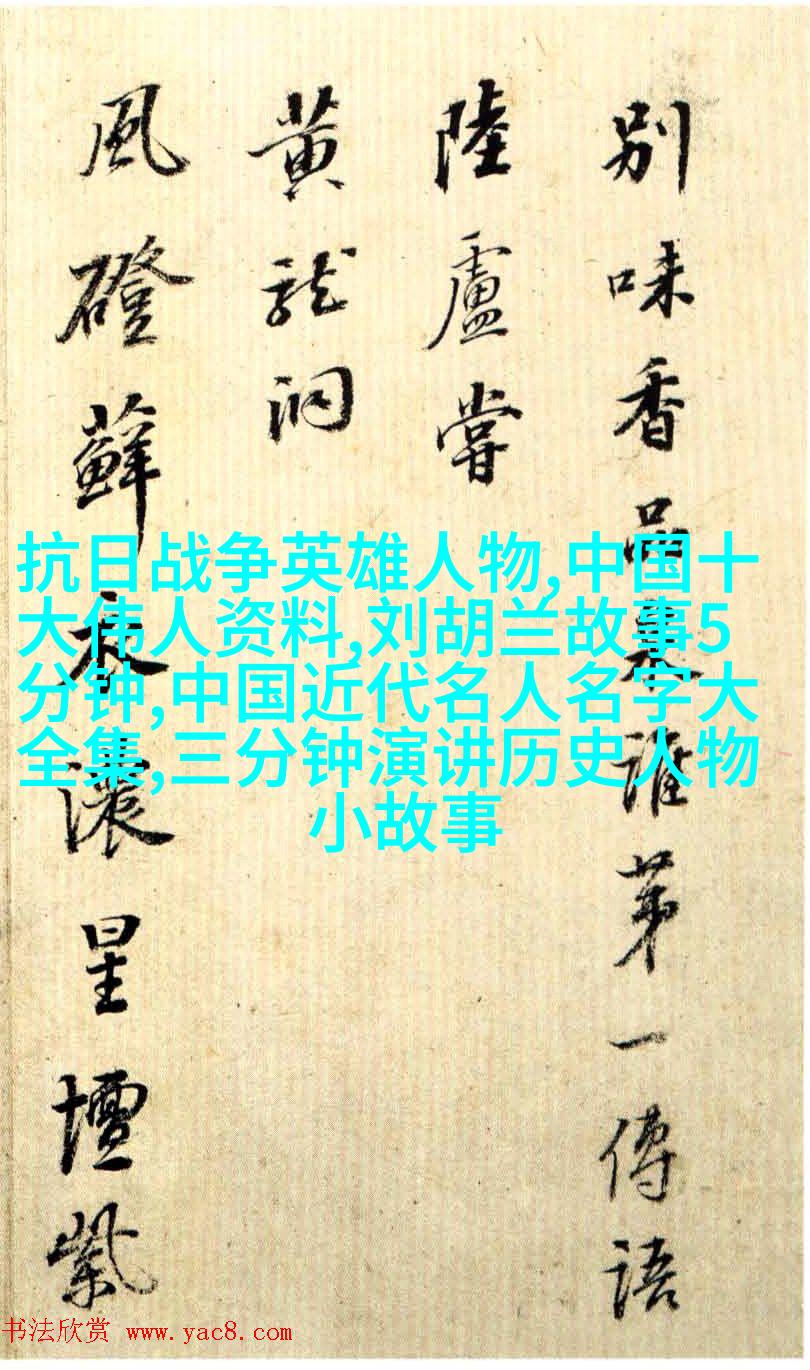 別味香品泉誰第一傳語
陸盧嘗
黃龍洞
風磴蘚衣濃星壇紫
抗日战争英雄人物,中国十
大伟人资料,刘胡兰故事5
分钟,中国近代名人名字大
全集,三分钟演讲历史人物
小故事
书法欣赏 www.yac8.com